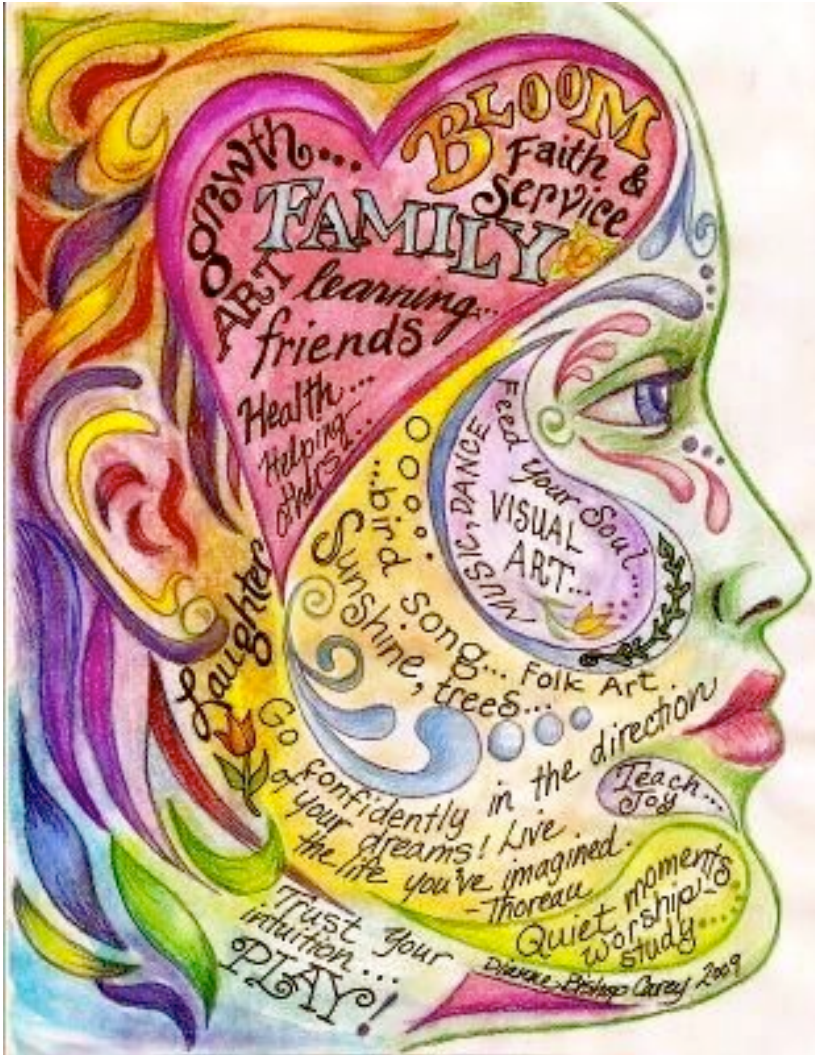 BLOOM
Faith &
Service
growth...
FAMILY
ART
learning...
friends
Health...
Helping
others...
Feed your Soul...
MUSIC, DANCE
VISUAL
ART...
...bird song...
Sunshine, trees...
Folk Art
Laughter
Go confidently in the direction
of your dreams! Live
the life you've imagined.
-Thoreau
Teach...
Joy
Quiet moments
worship-
study....
Trust Your
intuition...
PLAY!
Dianne Bishop Carey 2009